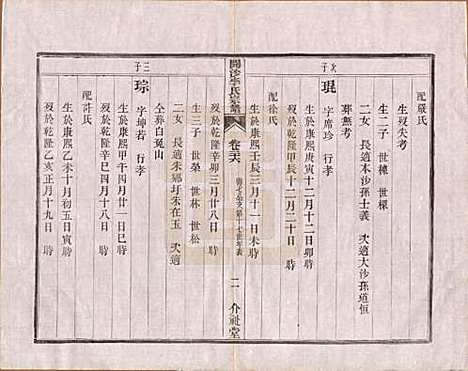 配嚴氏
生歿失考
生二子 世槐 世樑
二女 長適本沙孫士義 次適大沙孫道恒
葬無考
次子
琨 字席珍 行孝
生於康熙庚寅十二月十二日卯時
歿於乾隆 年十二月二十日 時
配徐氏
生於康熙壬辰三月十一日未時
開沙李氏宗譜
卷三六
二 介祉堂
歿於乾隆辛卯三月廿八日 時
生三子 世榮 世林 世松
二女 長適朱鄉圩朱在玉 次適
仝葬白兎山
三子
琮 字坤若 行孝
生於康熙甲午四月廿一日巳時
歿於乾隆辛巳四月十八日 時
配許氏
生於康熙乙未十月初五日寅時
歿於乾隆乙亥正月十九日 時